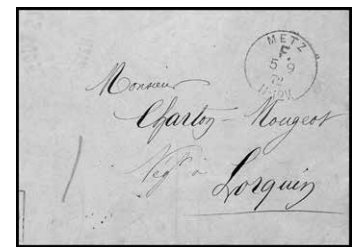 METZ
F.
5 9
72
Monsieur
Charton-Mougeot
Neg.t à
Lorquin